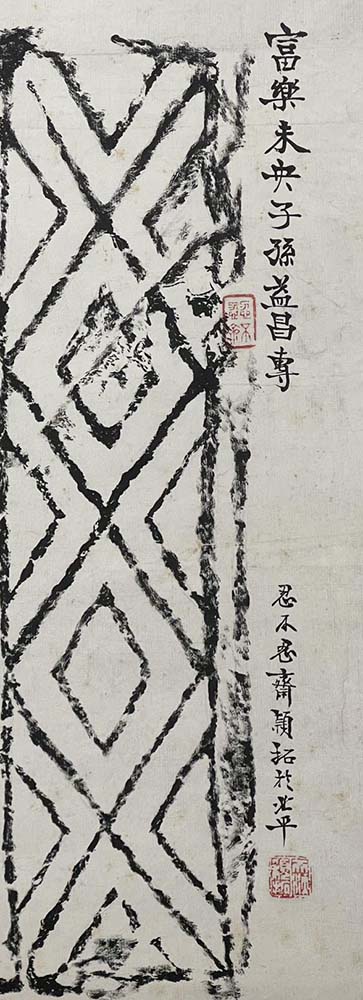 富樂未央子孫益昌專
忍不忍齋穎拓於北平